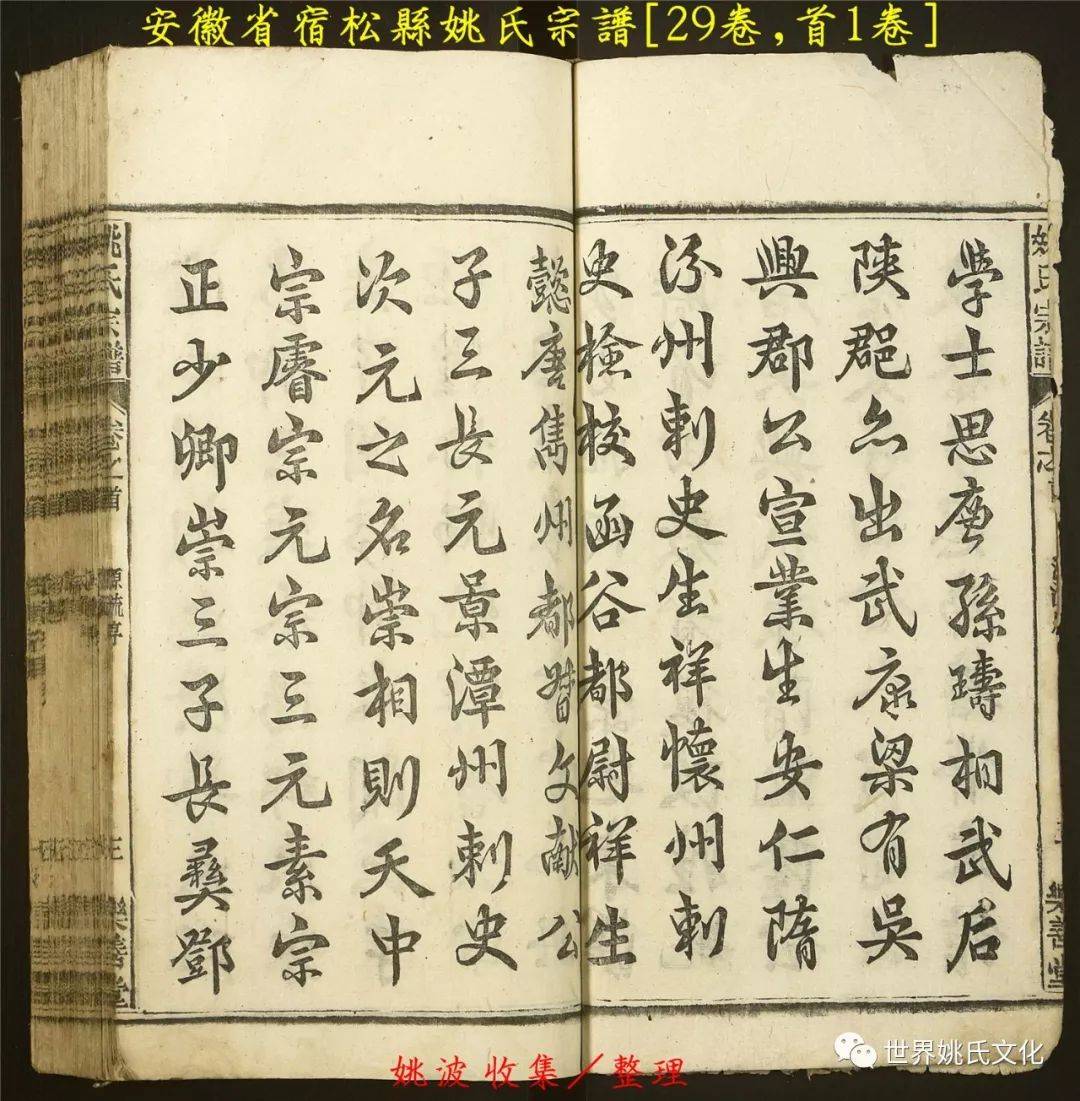 安徽省宿松縣姚氏宗譜[29卷,首1卷]
學士思唐孫璹相武后
陝郡亦出武康梁有吳
興郡公宣業生安仁隋
汾州刺史生祥懷州刺
史檢校函谷都尉祥生
懿唐雋州都督文献公
子三長元景潭州刺史
次元之名崇相則天中
宗睿宗元宗三元素宗
正少卿崇三子長彝鄧
姚氏宗譜
卷之首
源流序
樂善堂
姚波收集/整理
世界姚氏文化